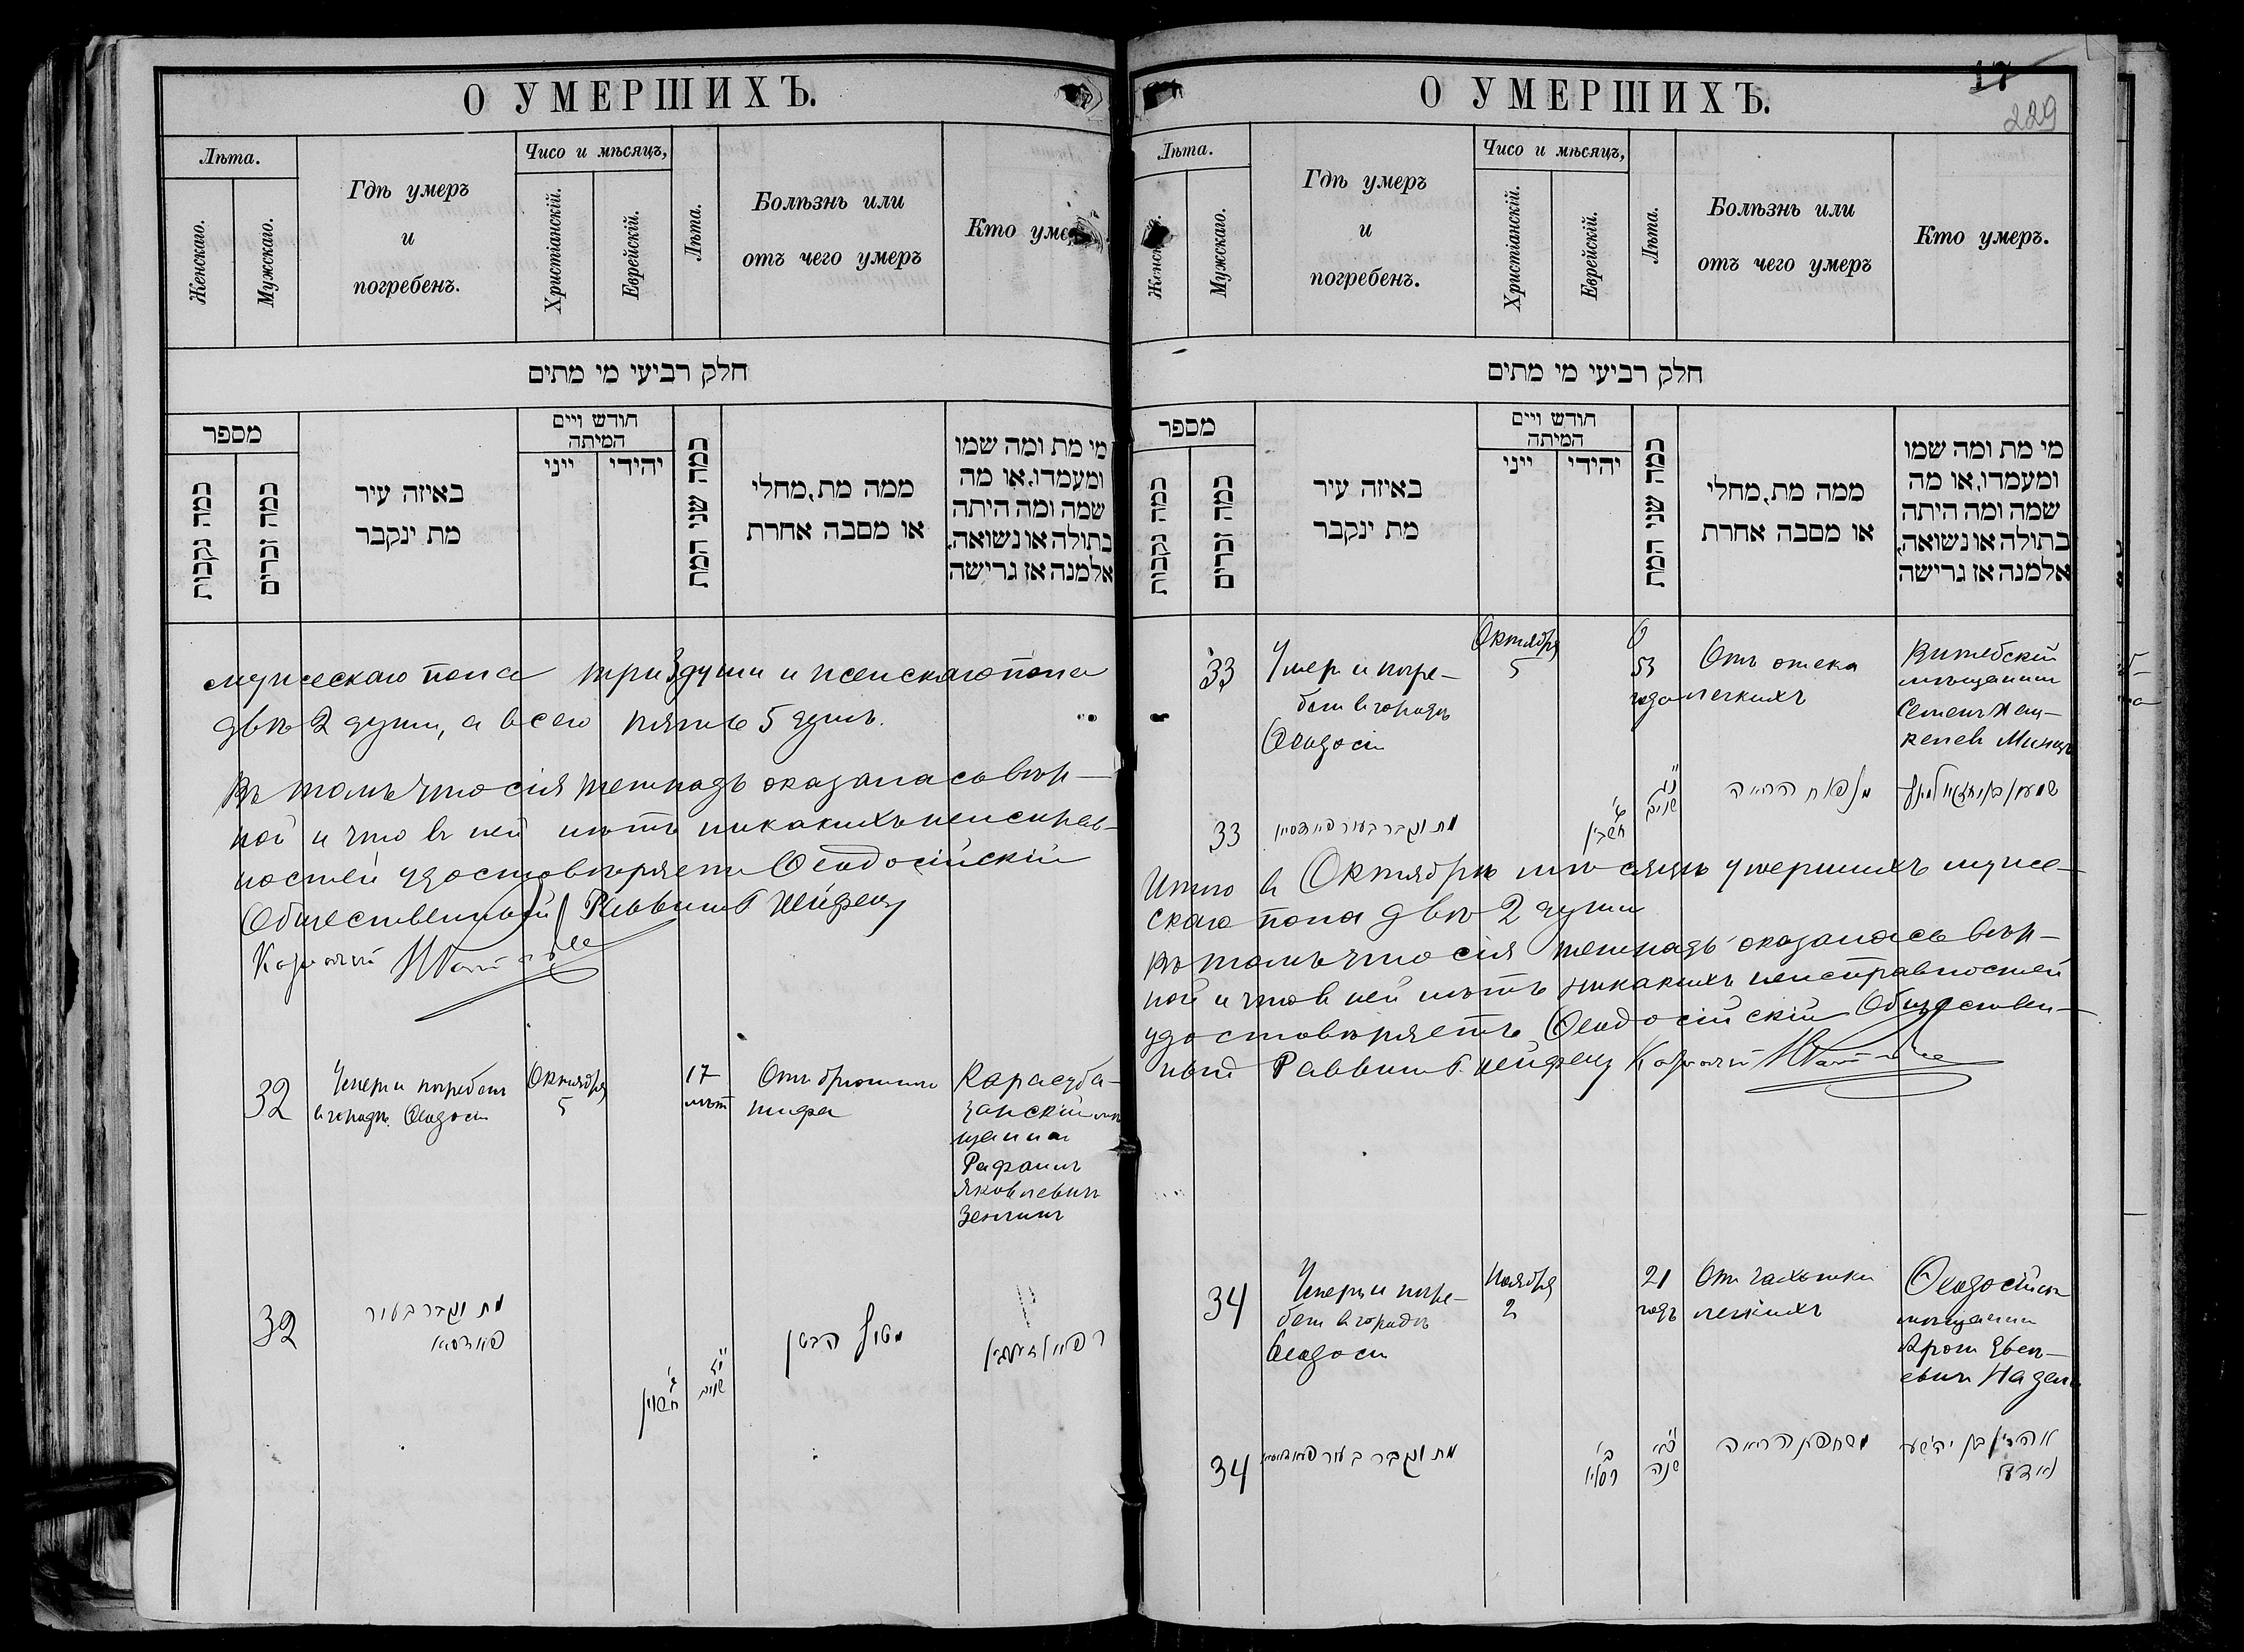 О УМЕРШИХЪ.
Лѣта.
Женскаго.
Мужскаго.
Гдѣ умеръ
и
погребенъ.
Чисо и мѣсяцъ,
Христіанскій.
Еврейскій.
Лѣта.
Болѣзнь или
отъ чего умеръ
Кто уме
חלק רביעי מי מתים
מספר
כמה נקבות
כמה זכרים
באיזה עיר
מת ינקבר
חודש ויים
המיתה
ייני
יהידי
כמה שני המת
ממה מת, מחלי
או מסבה אחרת
מי מת ומה שמו
ומעמדו, או מה
שמה ומה היתה
בתולה או נשואה,
אלמנה אז גרישה
мужескаго пола три 3 души и женскаго пола
двѣ 2 души, а всего пять 5 душъ.
Въ томъ что сія тетрадь оказалась вѣр-
ной и что въ ней нѣтъ никакихъ неисправ-
ностей удостовѣряетъ Ѳеодосійскій
Общественный Раввинъ Г. Шейфец
Казначей
32
Умеръ и погребенъ
въ городѣ Ѳеодосіи
Октября
5
17
лѣт
Отъ брюшного
тифа
Карасуба-
зарскій мѣ
щанинъ
Рафаилъ
Яковлевичъ
Зенгинъ
32
מת ונקבר בעיר
פיאדסיא
ג'
חשון
י"ז
שנים
רפאל זינגין
О УМЕРШИХЪ.
17
229
Лѣта.
Женск
Мужскаго.
Гдѣ умеръ
и
погребенъ.
Чисо и мѣсяцъ,
Христіанскій.
Еврейскій.
Лѣта.
Болѣзнь или
отъ чего умеръ
Кто умеръ.
חלק רביעי מי מתים
מספר
כמה נקבות
כמה זכרים
באיזה עיר
מת ינקבר
חודש ויים
המיתה
ייני
יהידי
כמה שני המת
ממה מת, מחלי
או מסבה אחרת
מי מת ומה שמו
ומעמדו, או מה
שמה ומה היתה
בתולה או נשואה,
אלמנה אז גרישה
33
Умеръ и погре-
бенъ въ городѣ
Ѳеодосіи
Октября
5
53
года
Отъ отека
легкихъ
Витебскій
мѣщанинъ
Семенъ Хац-
келев Минцъ
33
מת ונקבר בעיר פיאדסיא
חשון
נ"ג
שנים
הריאה
שמעון בן יחזקאל מינץ
Итого въ Октябрѣ мѣсяцѣ умершихъ муже-
скаго пола двѣ 2 души
Въ томъ что сія тетрадь оказалась вѣр-
ной и что въ ней нѣтъ никакихъ неисправностей
удостовѣряетъ Ѳеодосійскій Обществен-
ный Раввинъ Г. Шейфец Казначей
34
Умеръ и погре-
бенъ въ городѣ
Ѳеодосіи
Ноября
2
21
годъ
Отъ чахотки
легкихъ
Ѳеодосійск
мѣщанинъ
Аронъ Евсе-
евичъ Надель
34
מת ונקבר בעיר פיאדאסיא
ב'
כסליו
כ"א
שנה
משחפת הריאה
אהרן בן יהושע